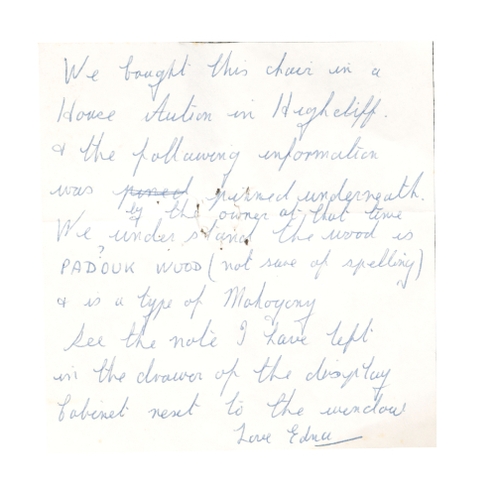 We bought this chair in a
House Aution in Highcliff.
& the following information
was pined pinned underneath.
by the owner at that time
We understand the wood is
?
PADOUK WOOD (not sure of spelling)
& is a type of Mahogony
See the note I have left
in the drawer of the display
Cabinet next to the window
Love Edna